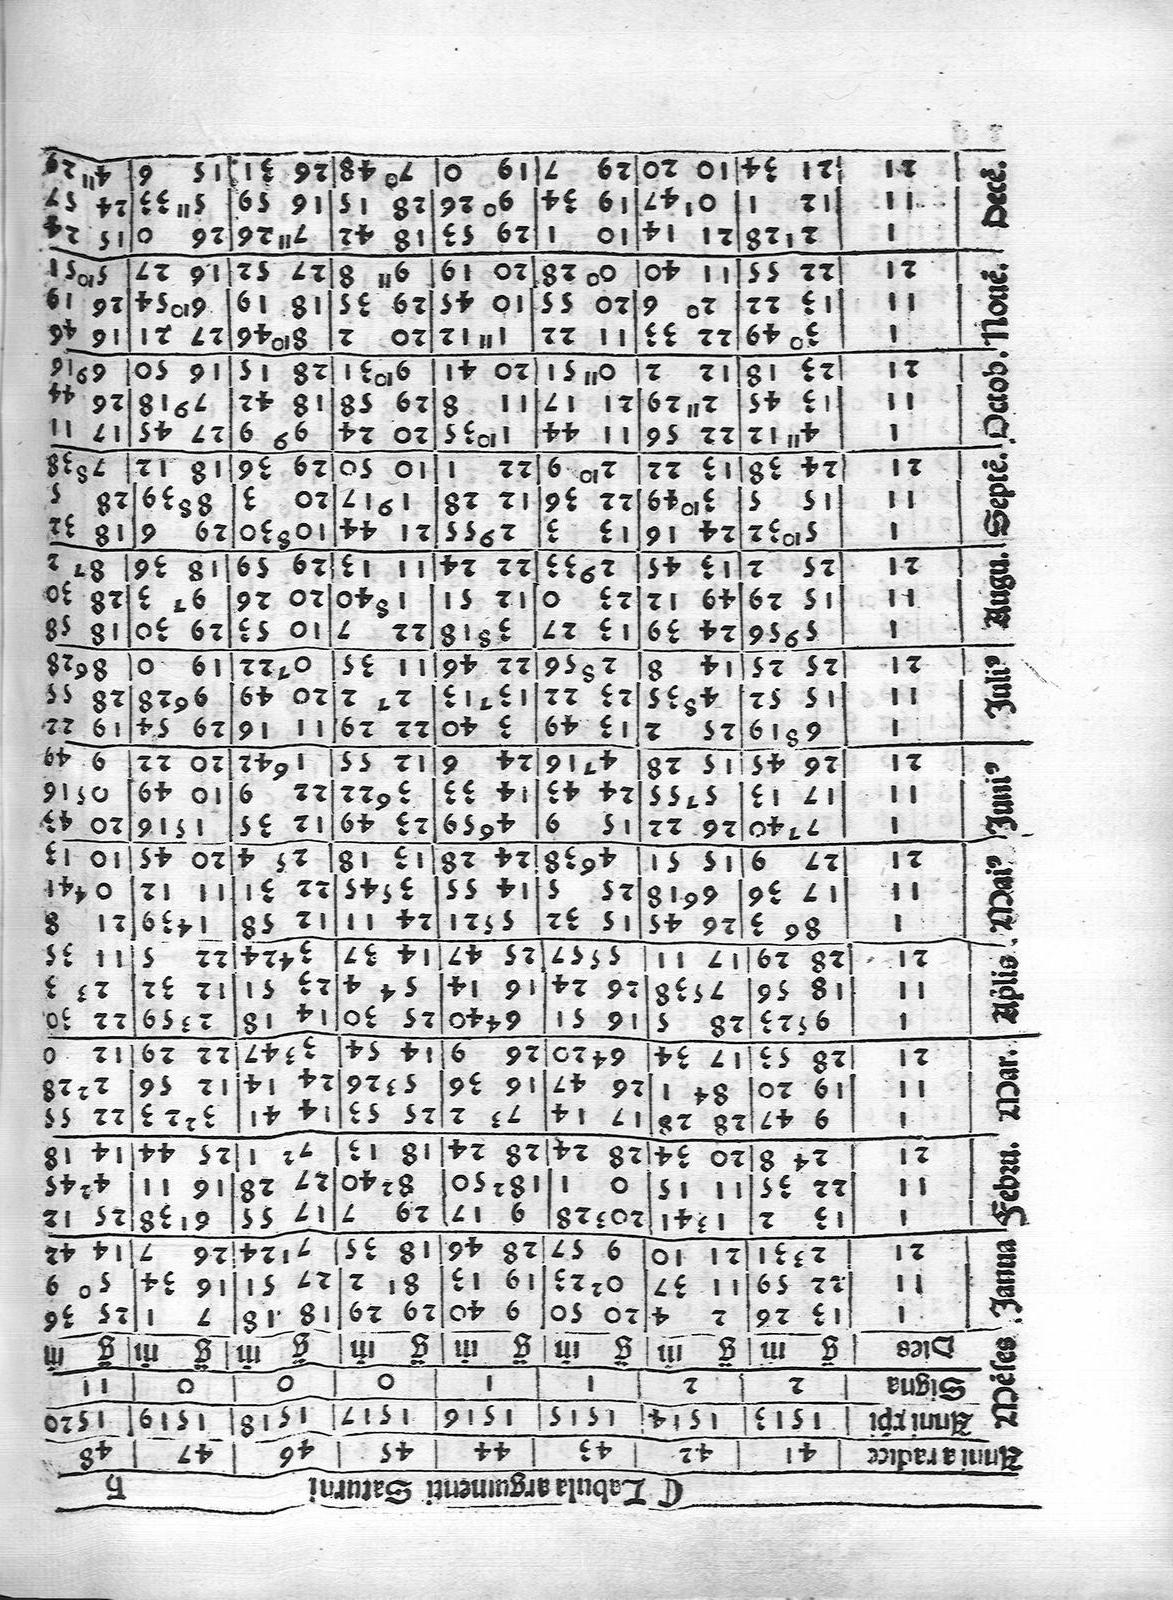 ☾ Tabula argumenti Saturni ♄
Anni a radice 41 42 43 44 45 46 47 48
Anni xp̄i 1513 1514 1515 1516 1517 1518 1519 1520
Mēses Signa 2 2 1 1 0 0 0 11
Dies g̈ m̄ g̈ m̄ g̈ m̄ g̈ m̄ g̈ m̄ g̈ m̄ g̈ m̄ g̈ m̄
Janua 1 13 26 2 4 20 50 9 40 29 29 18 18 7 1 25 36
11 22 59 11 37 0 2 23 19 13 8 1 2 27 51 16 34 5 0 9
21 2 3 31 21 10 9 57 28 46 18 35 7 1 24 26 7 14 42
Febru. 1 13 2 1 3 41 20 3 28 9 17 29 7 17 55 6 1 38 25 12
11 22 35 11 15 0 1 18 2 50 8 2 40 27 28 16 11 4 2 45
21 2 4 8 20 34 28 24 28 24 18 13 7 2 1 25 44 14 18
Mar. 1 9 47 28 28 17 14 7 3 2 25 53 14 41 3 2 2 3 22 55
11 19 20 8 4 1 26 47 16 36 5 3 26 24 14 12 56 2 2 28
21 28 53 17 34 6 4 20 26 9 14 54 3 3 47 22 29 12 0
Aplis. 1 9 5 23 28 5 16 51 6 4 40 25 30 14 18 2 3 59 22 30
11 18 56 7 5 38 26 24 16 14 5 4 4 23 51 12 32 2 3 3
21 28 29 17 11 5 5 57 25 47 14 37 3 4 24 22 5 11 35
Maiꝰ 1 8 6 3 26 45 15 32 5 5 21 24 11 12 58 1 4 39 21 8
11 17 36 6 6 18 25 5 14 55 3 5 45 22 31 11 12 0 4 41
21 27 9 15 51 4 6 38 24 28 13 18 2 5 4 20 45 10 13
Juniꝰ 1 7 7 40 26 22 15 9 4 6 59 23 49 12 35 1 5 16 20 43
11 17 13 5 7 55 24 43 14 33 3 6 22 22 9 10 49 0 5 16
21 26 45 15 28 4 7 16 24 6 12 55 1 6 42 20 22 9 49
Juliꝰ 1 6 8 19 25 2 13 49 3 40 22 29 11 16 29 54 19 22
11 15 52 4 8 35 23 22 13 7 13 2 7 2 20 49 9 6 28 28 55
21 25 25 14 8 2 8 56 22 46 11 35 0 7 22 19 0 8 6 28
Augu. 1 5 9 56 24 39 13 27 3 8 18 22 7 10 53 29 30 18 58
11 15 29 49 12 23 0 12 51 1 8 40 20 26 9 7 3 28 30
21 25 2 13 45 2 9 33 22 24 11 13 29 59 18 36 8 7 2
Septē. 1 5 10 32 24 16 13 3 2 9 55 21 44 10 8 30 29 6 18 32
11 15 5 3 10 49 22 36 12 28 1 9 17 20 3 8 8 39 28 5
21 24 38 13 22 2 10 9 22 1 10 50 29 36 18 12 7 8 38
Octob. 1 4 11 12 22 56 11 44 1 10 35 20 24 9 9 9 27 45 17 11
11 13 45 2 11 29 21 17 11 8 29 58 18 42 7 9 18 26 44
21 23 18 12 2 0 11 51 20 41 9 10 31 28 15 16 50 6 9 16
Nouē. 1 3 0 49 22 33 11 22 1 11 12 20 2 8 10 46 27 21 16 46
11 13 22 2 0 6 20 55 10 45 29 35 18 19 6 10 54 26 19
21 22 55 11 40 0 0 28 20 19 9 11 8 27 52 16 27 5 10 51
Decē. 1 2 1 28 21 14 10 1 29 53 18 42 7 11 26 26 0 15 24
11 12 1 0 1 47 19 34 9 0 26 28 15 16 59 5 11 33 24 57
21 21 34 10 20 29 7 19 0 7 0 48 26 31 15 6 4 11 29